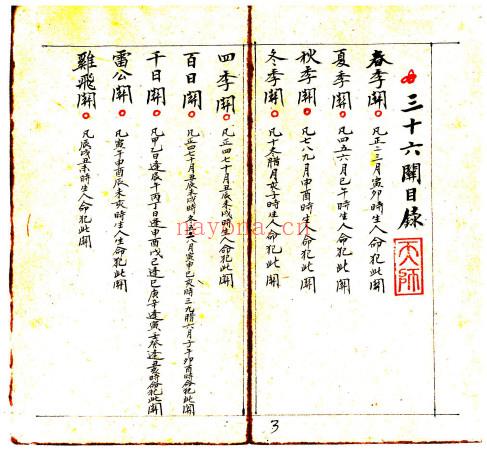 三十六關目錄
天師
春季關 凡正二三月寅卯時生人命犯此關
夏季關 凡四五六月巳午時生人命犯此關
秋季關 凡七八九月申酉時生人命犯此關
冬季關 凡十冬腊月亥子時生人命犯此關
四季關 凡正四七十月丑辰未戌時生人命犯此關
百日關 凡正四七十月丑辰未戌時冬五二八月寅申巳亥時三九腊六月子午卯酉時命犯此關
千日關 凡甲乙日逢辰午丙丁日逢申酉戊己逢巳庚辛逢寅壬癸逢丑亥時命犯此關
雷公關 凡寅午申酉辰未亥時生人生命犯此關
雞飛關 凡辰戌丑未時生人命犯此關
nayona.cn
3